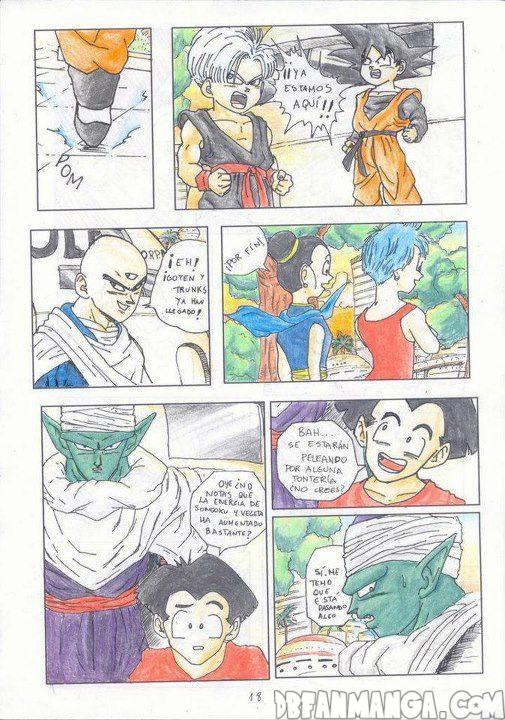 POM
¡¡YA
ESTAMOS
AQUÍ!!
¡EH!
¡GOTEN Y
TRUNKS
YA HAN
LLEGADO!
¡POR FÍN!
OYE ¿NO
NOTAS QUE
LA ENERGIA DE
SONGOKU Y VEGETA
HA AUMENTADO
BASTANTE?
BAH...
SE ESTARÁN
PELEANDO
POR ALGUNA
TONTERÍA
¿NO CREES?
SÍ, ME
TEMO
QUE
ESTA
PASANDO
ALGO
18
DBFANMANGA.COM